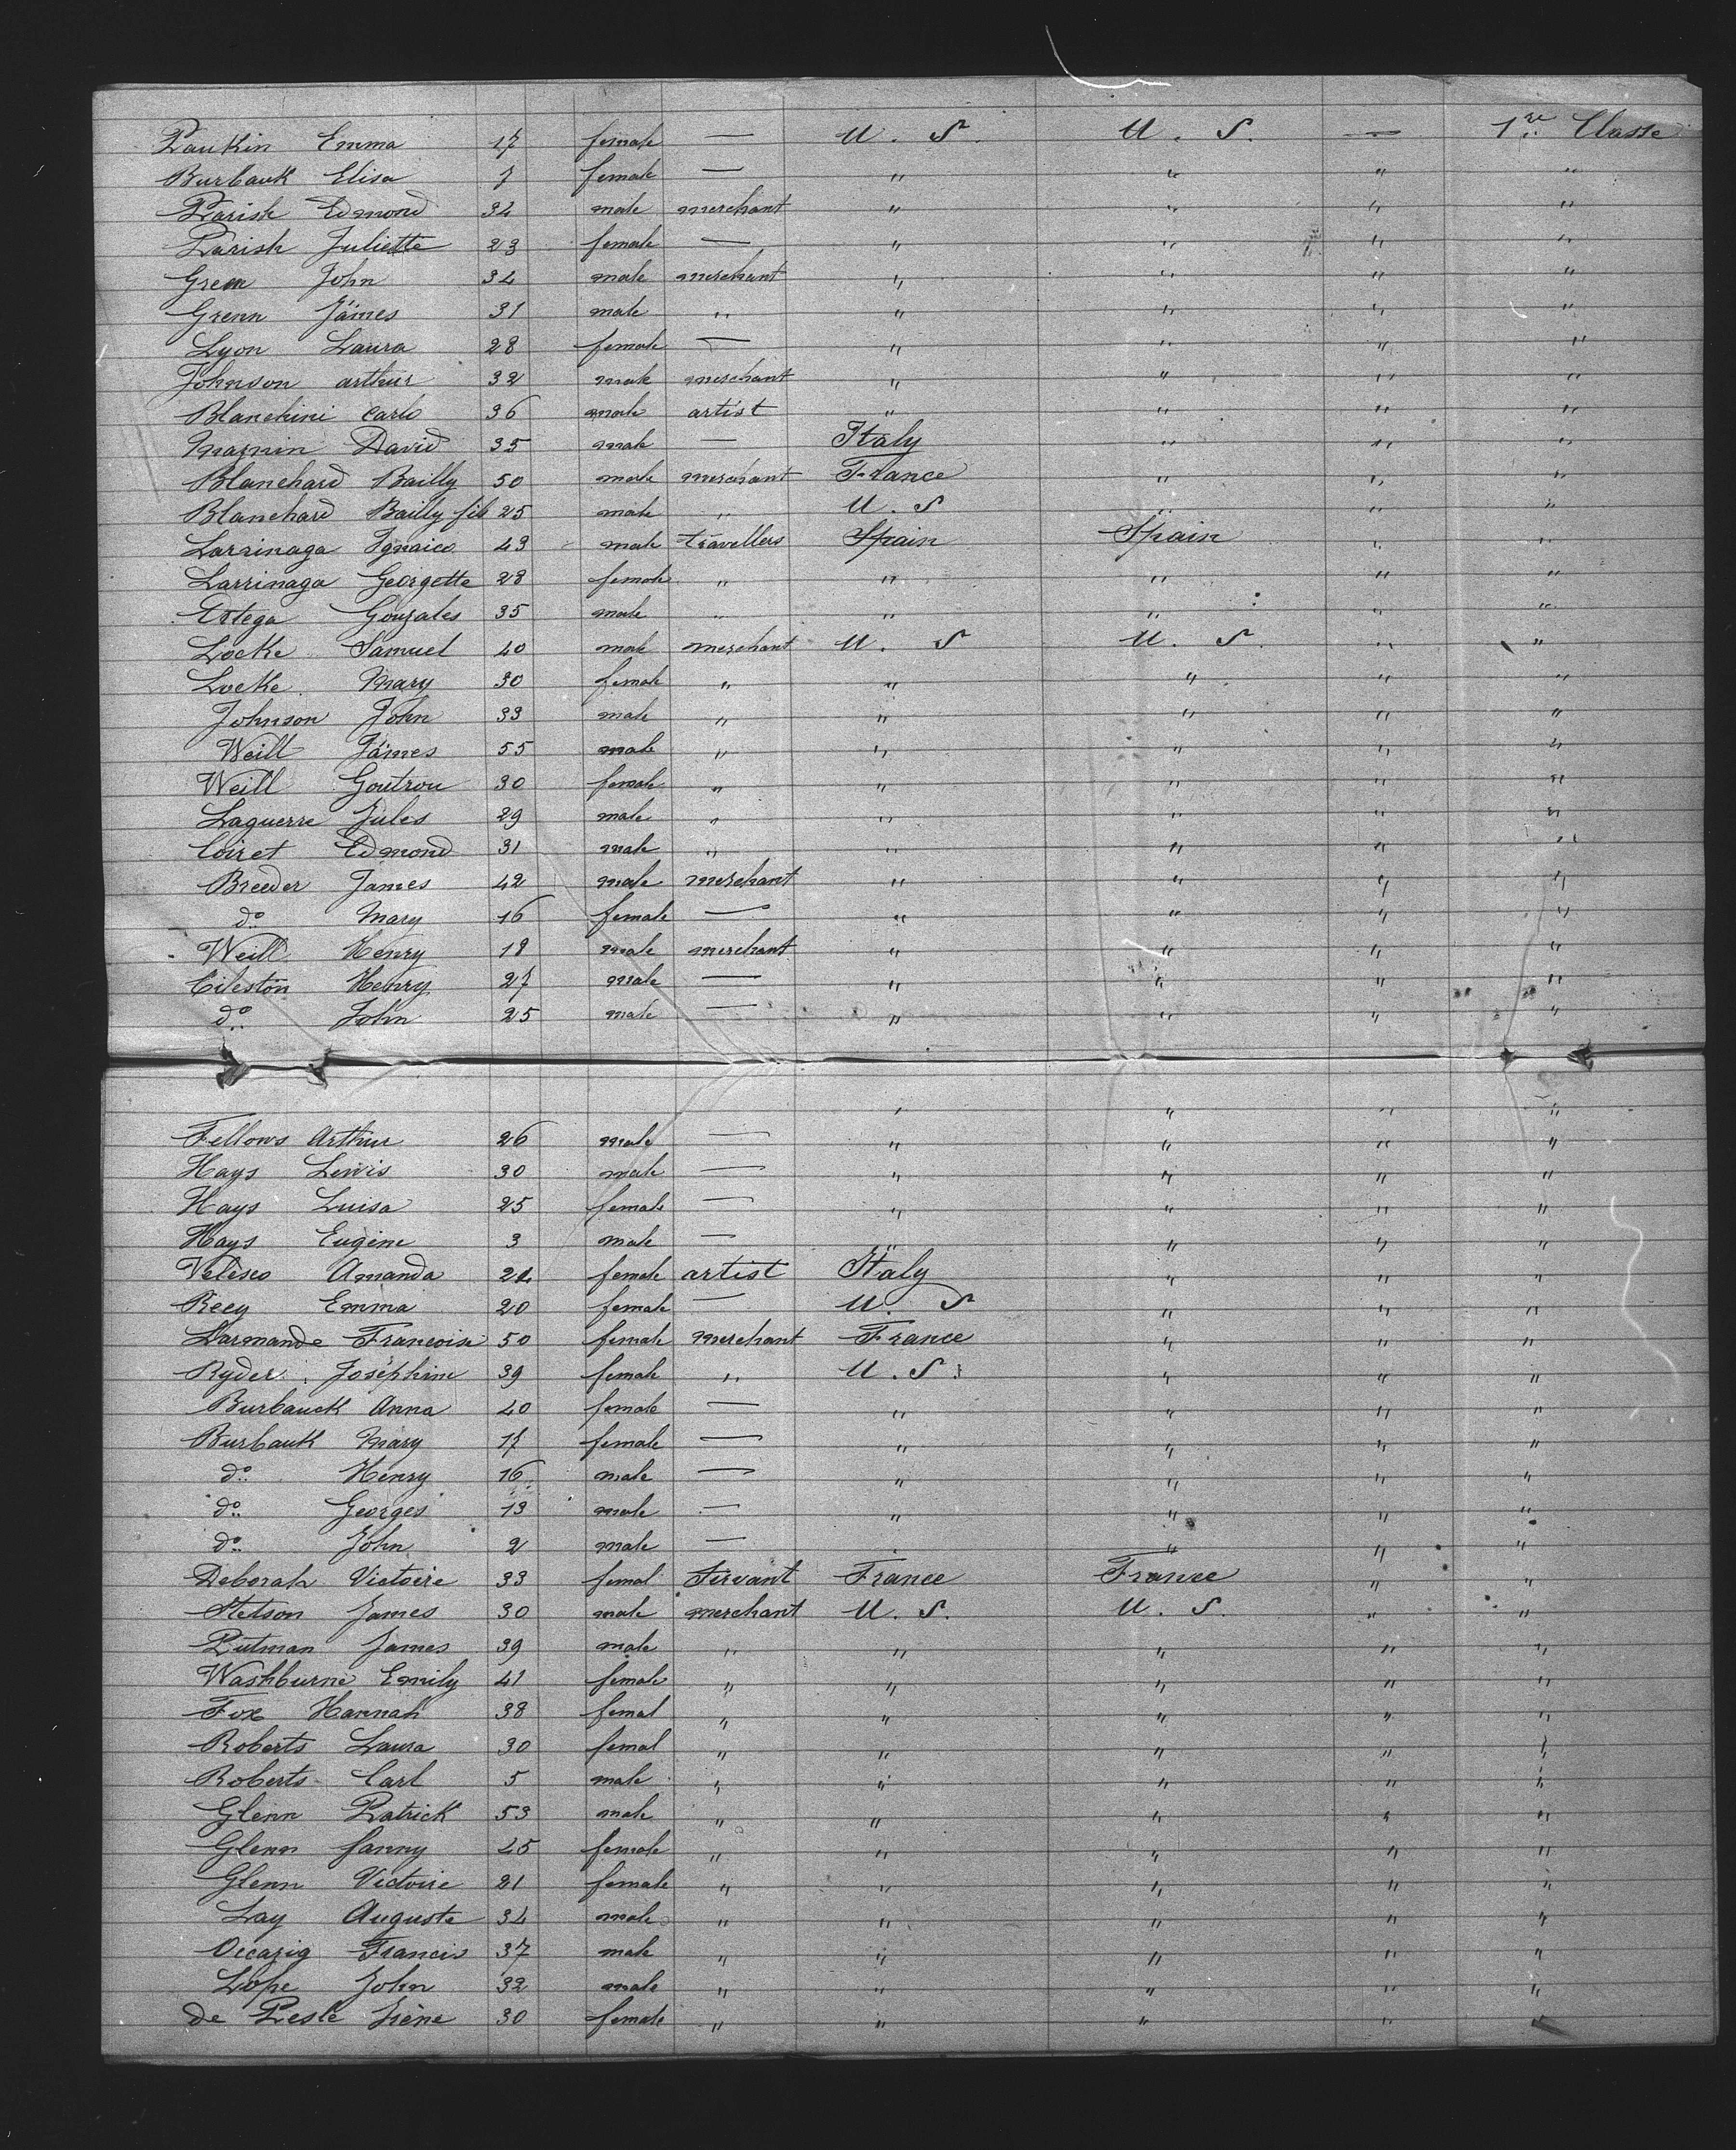 Paukin Emma 17 female — U. S. U. S. — 1re Classe
Burbauk Elisa 7 female — " " " "
Parish Edmond 34 male merchant " " " "
Parish Juliette 23 female — " " " "
Green John 34 male merchant " " " "
Grenn James 31 male " " " " "
Lyon Laura 28 female — " " " "
Johnson arthur 32 male merchant " " " "
Blanchini Carlo 36 male artist " " " "
Magnin David 35 male — Italy " " "
Blanchard Bailly 50 male merchant France " " "
Blanchard Bailly fils 25 male " U. S " " "
Larrinaga Ignaico 43 male travellers Spain Spain " "
Larrinaga Georgette 28 female " " " " "
Ortega Gonzales 35 male " " " " "
Locke Samuel 40 male merchant U. S U. S. " "
Locke Mary 30 female " " " " "
Johnson John 33 male " " " " "
Weill James 55 male " " " " "
Weill Goutrou 30 female " " " " "
Laguerre Jules 29 male " " " " "
Coiret Edmond 31 male " " " " "
Breeder James 42 male merchant " " " "
do Mary 16 female — " " " "
Weill Henry 18 male merchant " " " "
Cileston Henry 27 male — " " " "
do John 25 male — " " " "
" " " "
Fellows Arthur 26 male — " " " "
Hays Lewis 30 male — " " " "
Hays Luisa 25 female — " " " "
Hays Eugène 3 male — " " " "
Velesco Amanda 24 female artist Italy " " "
Reey Emma 20 female — U. S " " "
Darmande Francoise 50 female merchant France " " "
Ryder Joséphine 39 female " U. S. " " "
Burbauck Anna 40 female — " " " "
Burbauk Mary 17 female — " " " "
do Henry 16 male — " " " "
do Georges 13 male — " " " "
do John 2 male — " " " "
Deborah Victoire 33 femal Servant France France " "
Stetson James 30 male merchant U. S. U. S. " "
Putman James 39 male " " " " "
Washburne Emily 41 female " " " " "
Fox Hannah 38 femal " " " " "
Roberts Laura 30 femal " " " " "
Roberts Carl 5 male " " " " "
Glenn Patrick 53 male " " " " "
Glenn fanny 45 female " " " " "
Glenn Victoire 21 female " " " " "
Lay Auguste 34 male " " " " "
Occazig Francis 37 male " " " " "
Lope John 32 male " " " " "
de Pesle Irène 30 female " " " " "